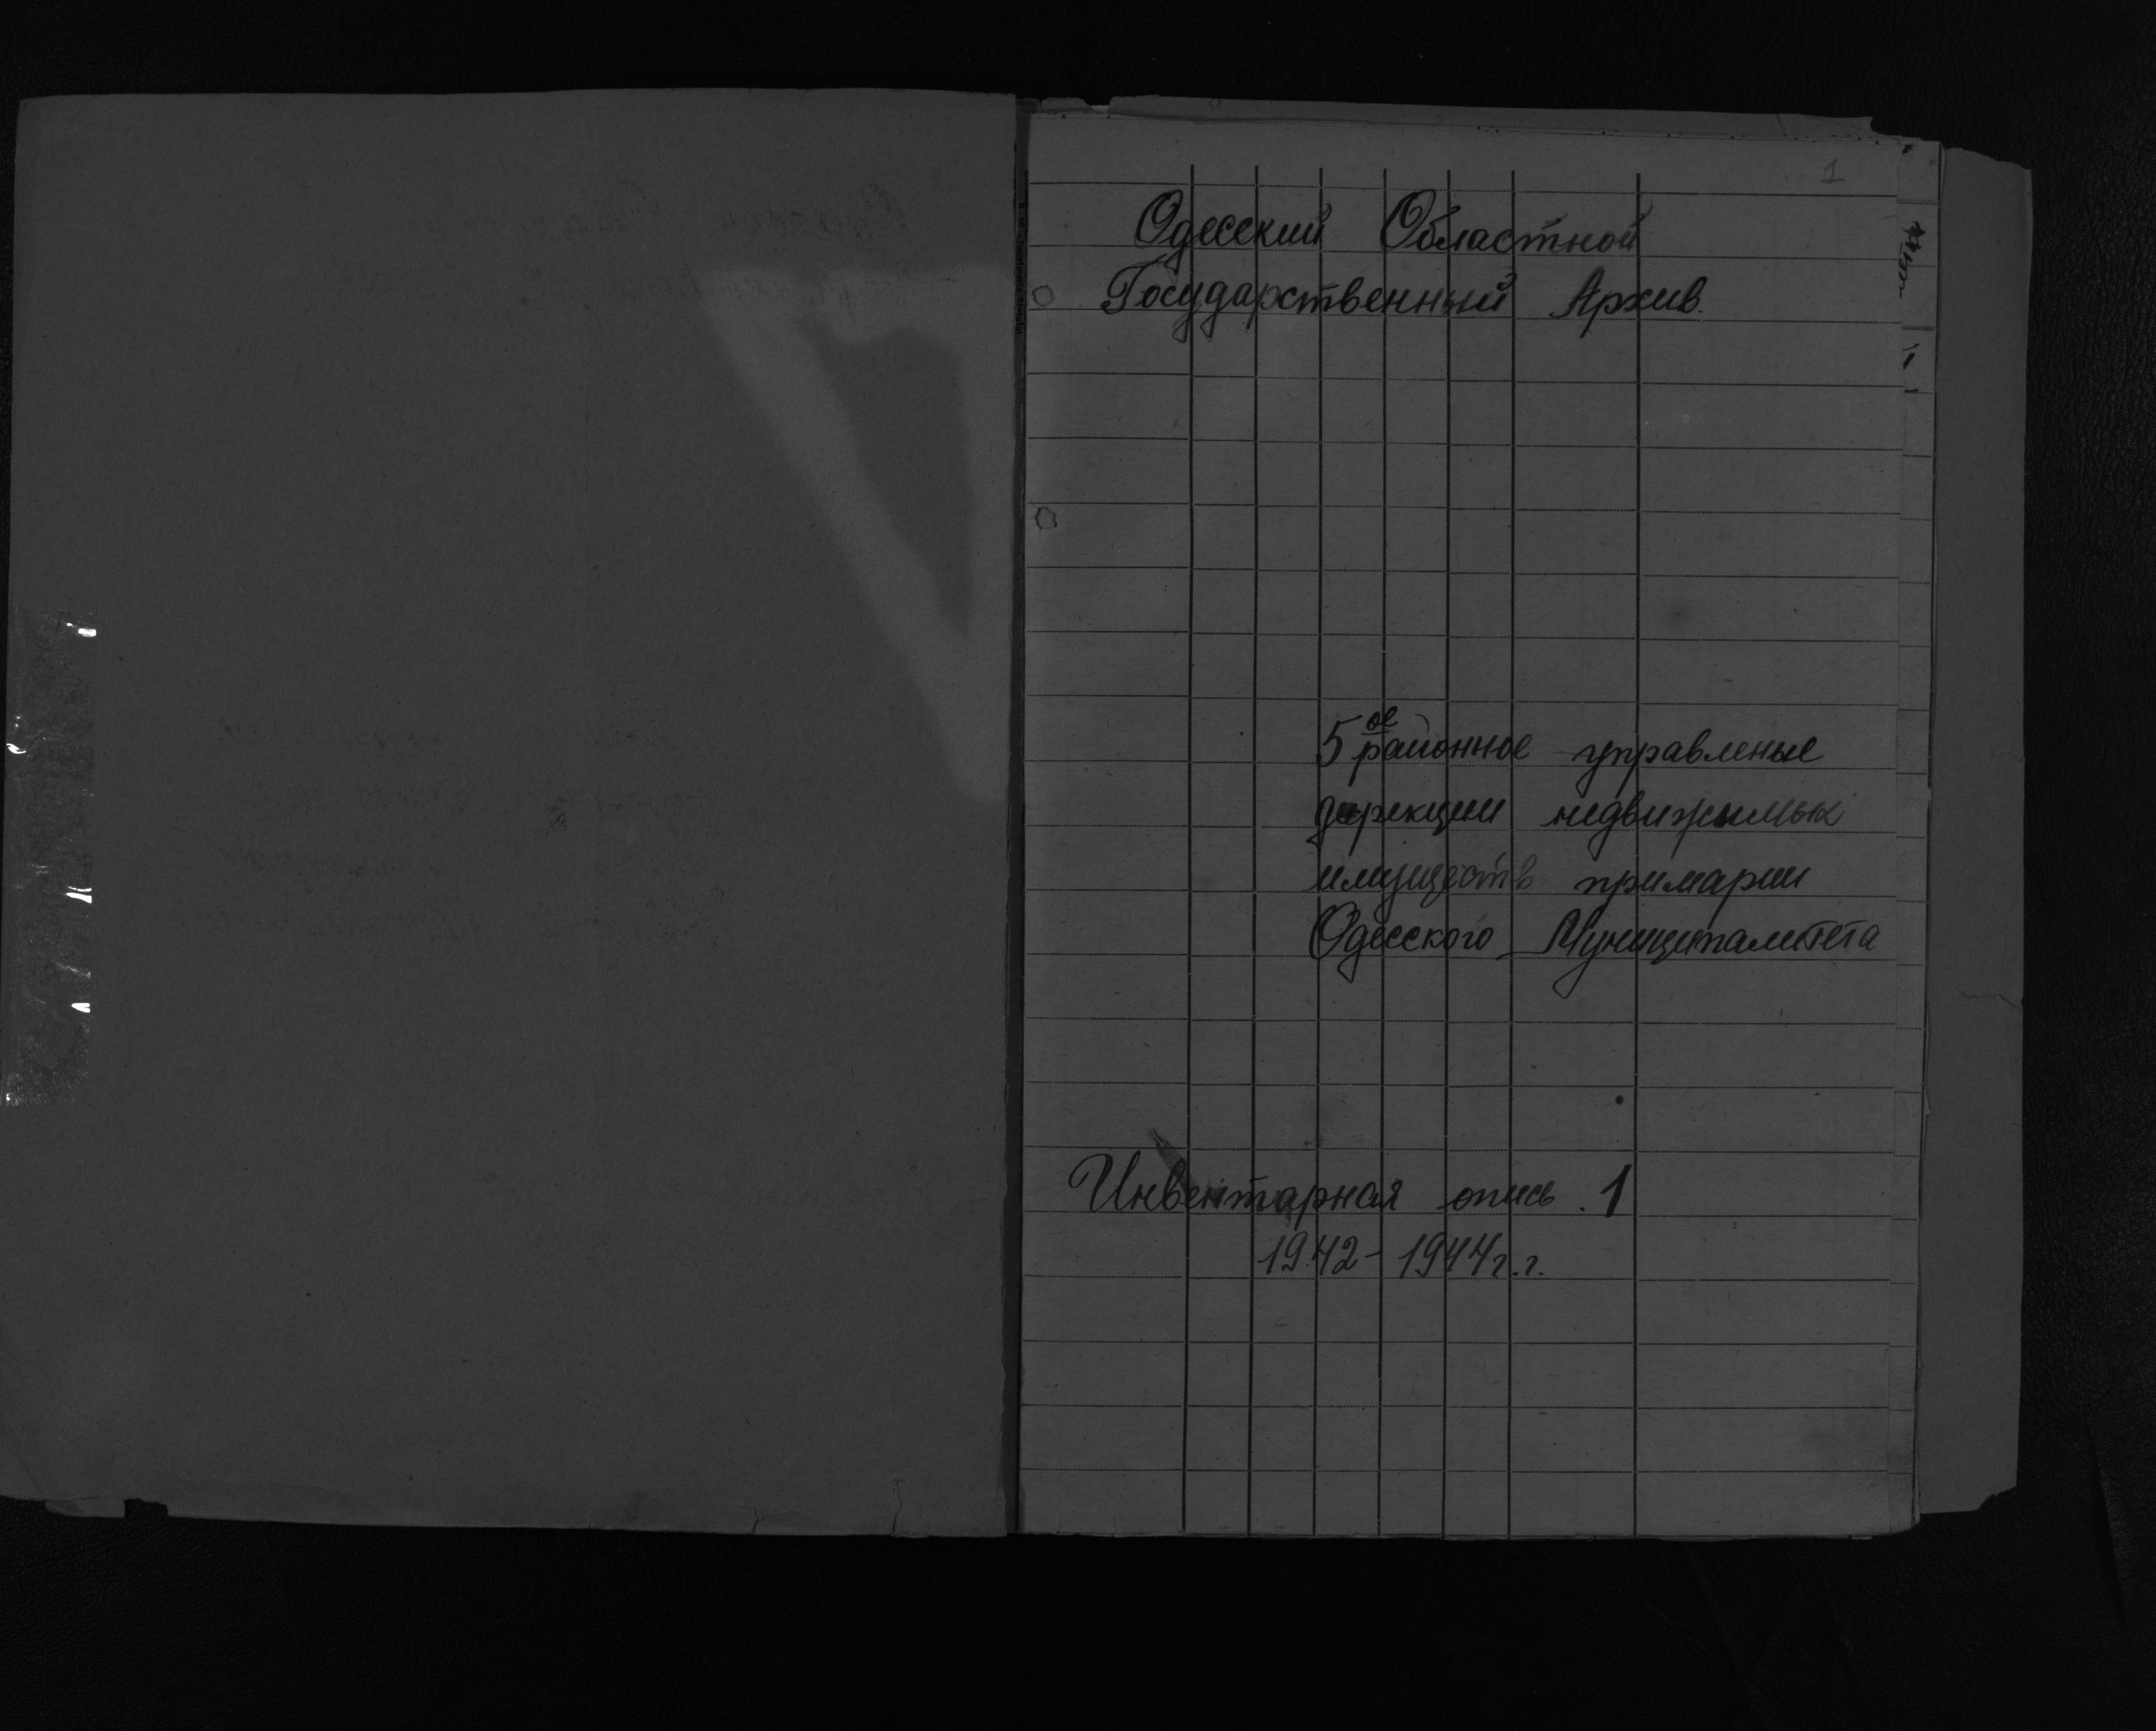 1
Одесский Областной
Государственный Архив.
5ое районное управленье
дирекции недвижимых
имуществ примарии
Одесского Муниципалитета
Инвентарная опись 1
1942-1944 г.г.